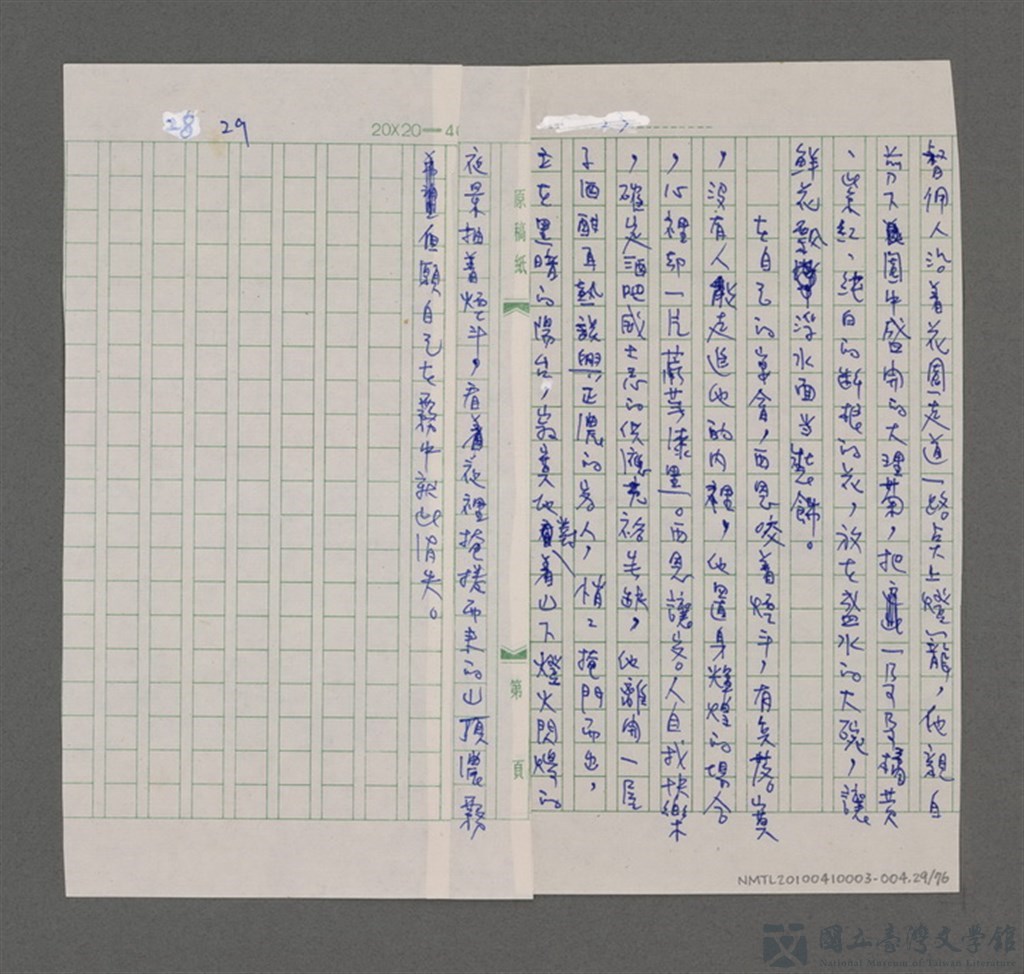 督佣人沿着花園走道一路点上燈籠，他親自
剪下園中盛開的大理菊，把一朵朵橘黃
、紫紅、純白的断根的花，放在盛水的大碗，讓
鮮花飄浮水面当裝飾。
在自己的宴會，西恩咬着煙斗，有点落寞
，沒有人走進他的內裡，他置身輝煌的場合
，心裡却一片荒蕪漆黑。西恩讓客人自找快樂
，確定酒吧威士忌的供應充裕無缺，他離開一屋
子酒酣耳熱談興正濃的客人，悄悄掩門而出，
立在黑暗的陽台，寂寞地對着山下燈火閃爍的
夜景抽着煙斗，看着夜裡掩捲而來的山頂濃霧
但願自己在霧中就此消失。
28 29
20X20＝40
原稿紙
第 頁
NMTL20100410003-004.29/76
國立臺灣文學館
National Museum of Taiwan Literature